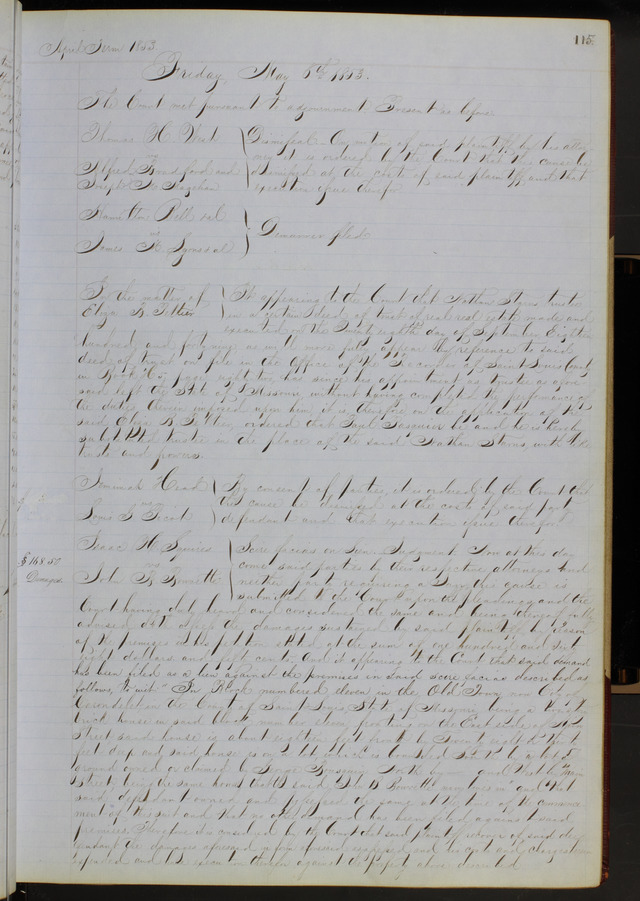 115
April Term 1853
Friday, May 6th 1853.
The Court met pursuant to adjournment Present as before
Thomas H. West
Alfred and
Joseph
Dismissed. On motion of said plaintiff by his attor
ney it is ordered by the Court that this cause be
dismissed at the cost of said plaintiff and that
execution issue therefor
Hamilton Bell
vs
James
Demurrer filed
In the matter of
Eliza B
It appearing to the Court that Nathan Starns trustee
in a certain deed of trust of real estate made and
executed on the twenty eighth day of September Eighteen
hundred and forty nine as will more fully appear by reference to said
deed of trust on file in the Office of the Recorder of Saint Louis County
in Book page eighty two has since his appointment as trustee as afore
said left the State of Missouri without having completed the performance of
the duties therein imposed upon him, it is therefore on the application of the
said Eliza B ordered that be and he is hereby
substituted trustee in the place of the said Nathan Starns, with like
trusts and powers.
Jeremiah
vs
Louis
By consent of parties, it is ordered by the Court that
this cause be dismissed at the cost of said party
defendant and that execution issue therefor
$168.50
Damages.
Isaac H
vs
John B
Scire facias on Lien. Judgment. Now at this day
come said parties by their respective attorneys and
neither party requiring a Jury this cause is
submitted to the Court upon the pleadings and the
Court having duly heard and considered the same and being thereof fully
advised doth assess the damages sustained by said plaintiff by reason
of the premises in his petition stated at the sum of one hundred and sixty
eight dollars and fifty cents. And it appearing to the Court that said demand
has been filed as a lien against the premises in said scire facias described as
follows, to wit: "In Block numbered eleven in the Old Town now City of
Carondelet in the County of Saint Louis, State of Missouri being a
brick house in said block number eleven fronting on the East side of
Street said house is about eighteen feet front by twenty eight
feet deep and said house is on a lot which is bounded South by a lot of
ground owned or claimed by George North by and West by Main
Street, being the same house that said John B now lives in" and that
said defendant owned and possessed the same at the time of the commence
ment of this suit and that no other demand has been filed against said
premises. Therefore it is considered by the Court that said plaintiff recover of said de
fendant the damages aforesaid in form aforesaid assessed, and his costs and charges herein
expended and have execution therefor against the property above described